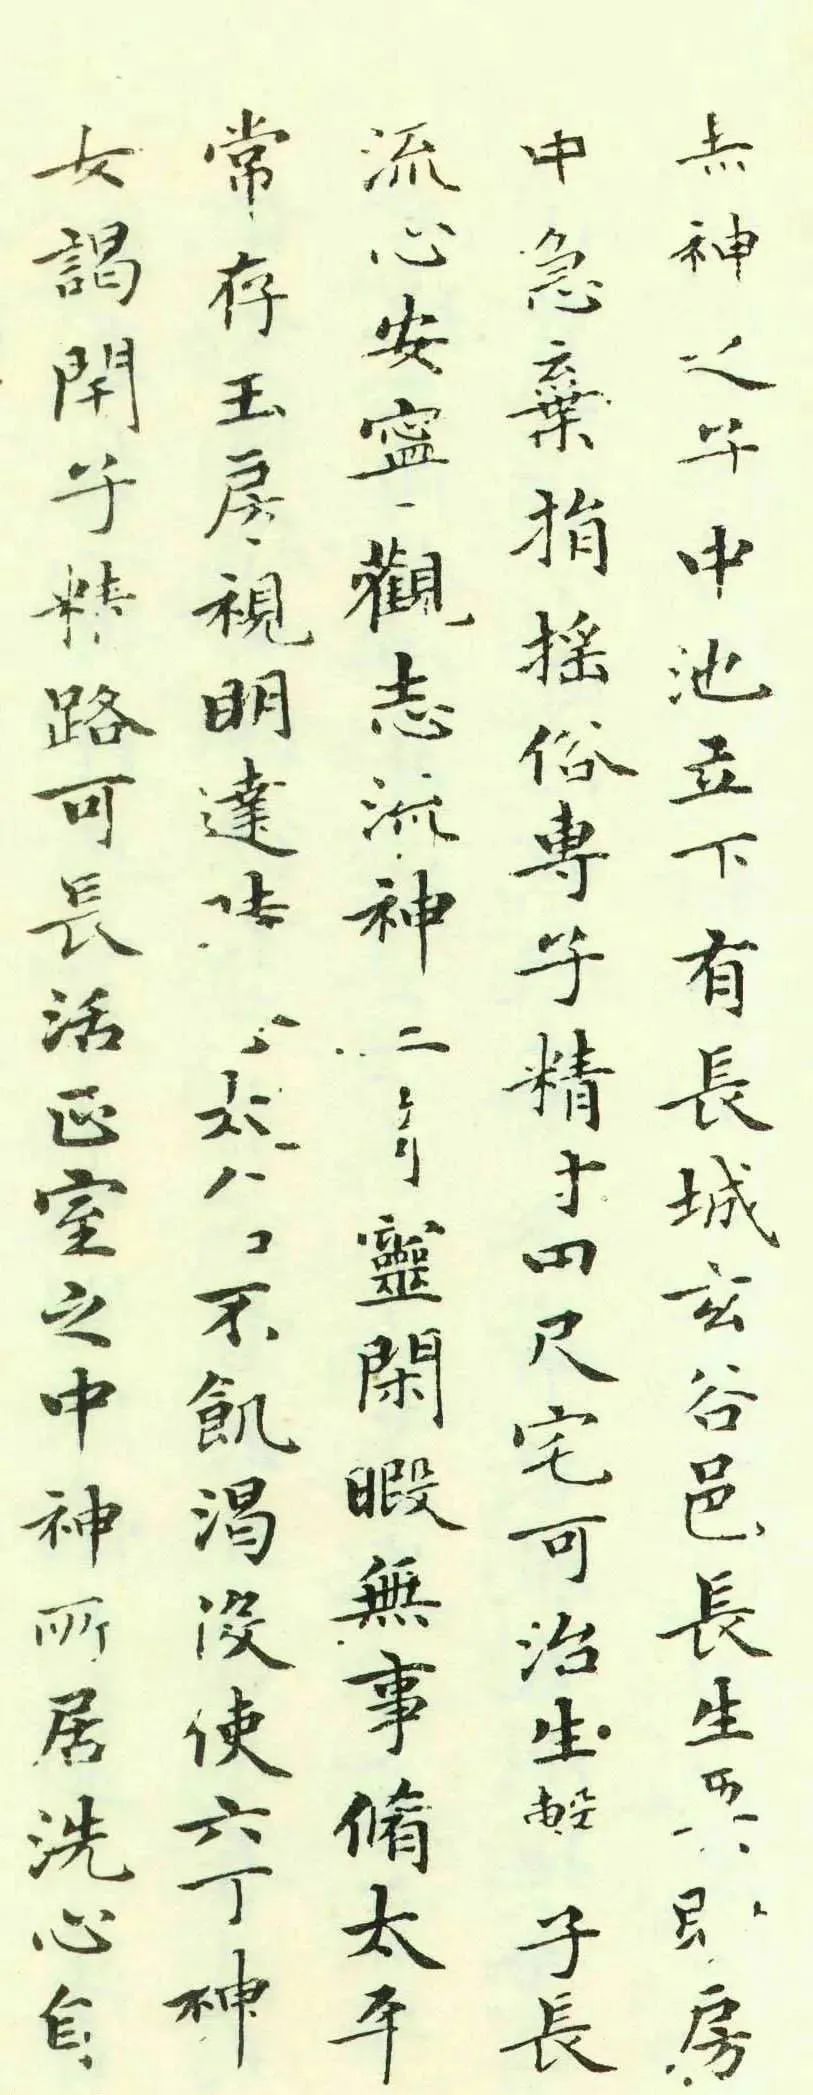 赤神之子中池立下有長城玄谷邑長生要眇房
中急棄捐搖俗專子精寸田尺宅可治生 子長
流心安寧觀志流神三奇靈閑暇無事脩太平
常存玉房視明達時 太倉不飢渴役使六丁神
女謁閉子精路可長活正室之中神所居洗心自